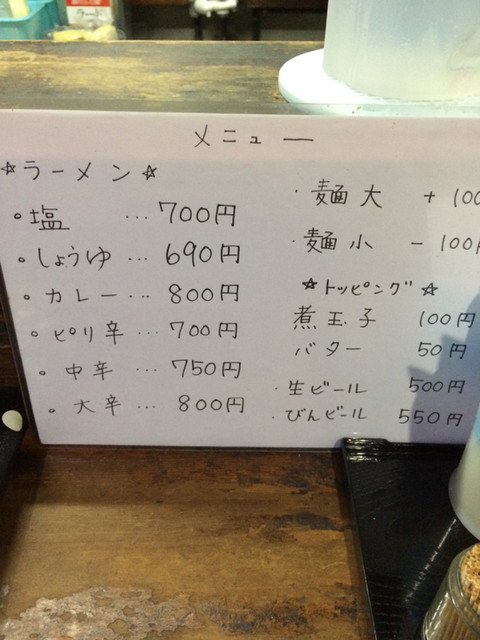 メニュー
☆ラーメン☆
・塩 … 700円
・しょうゆ … 690円
・カレー … 800円
・ピリ辛 … 700円
・中辛 … 750円
・大辛 … 800円
・麺 大 +100
・麺 小 -100円
☆トッピング☆
煮玉子 100円
バター 50円
・生ビール 500円
・びんビール 550円